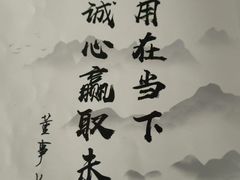 用在当下
诚心赢取未
董事